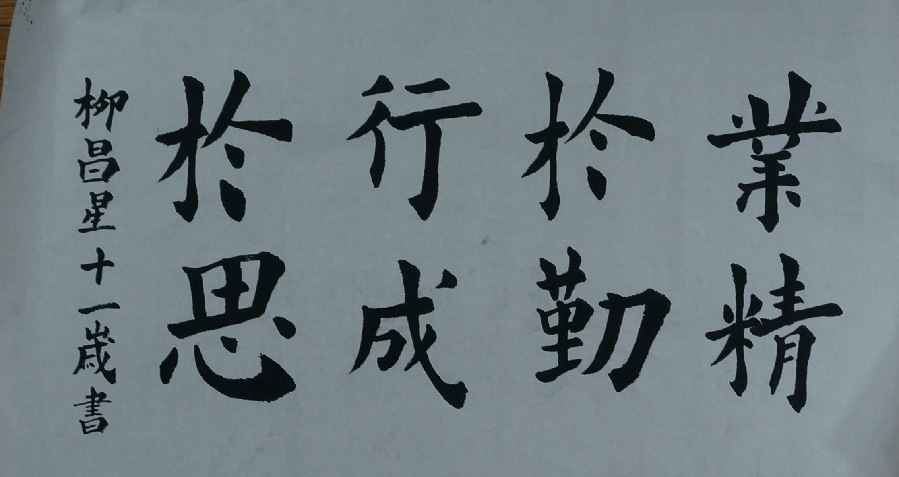 業精
於勤
行成
於思
柳昌星十一歲書